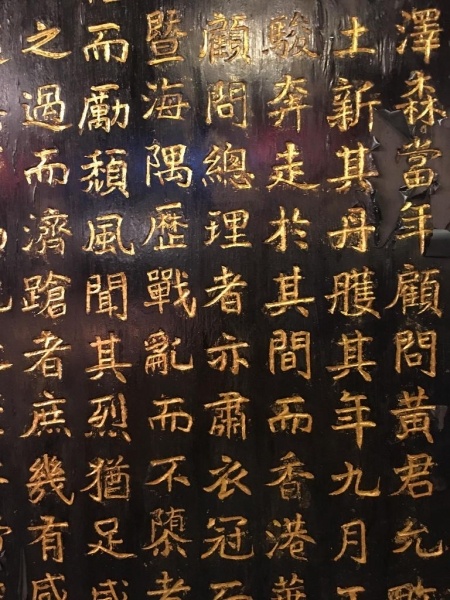 澤森當年顧問黃君允
土新其丹雘其年九月
駿奔走於其間而香港華
顧問總理者亦肅衣冠
暨海隅歷戰亂而不隳者
而勵頹風聞其烈猶足感
之過而濟蹌者庶幾有感